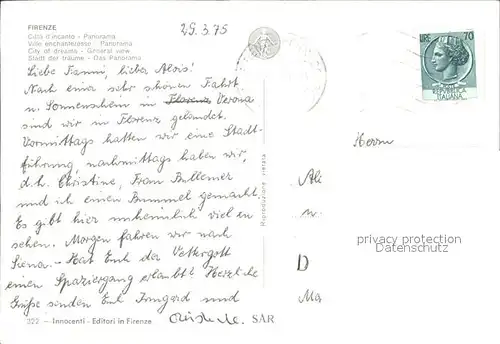 FIRENZE
Città d'incanto - Panorama
Ville enchanteresse - Panorama
City of dreams - General view
Stadt der träume - Das Panorama
25.3.75
Liebe Fanni, lieber Alois!
Nach einer sehr schönen Fahrt
u. Sonnenschein in Florenz Verona
sind wir in Florenz gelandet.
Vormittags hatten wir eine Stadt-
führung nachmittags haben wir,
d.h. Christine, Frau
und ich einen Bummel gemacht.
Es gibt hier unheimlich viel zu
sehen. Morgen fahren wir nach
Siena. - Hat Euch der Wettergott
einen Spaziergang erlaubt? Herzliche
Grüße senden Euch Irmgard und
Christine.
322 - Innocenti - Editori in Firenze
SAR
Riproduzione vietata
LIRE 70
REPUBBLICA
ITALIANA
Herrn
Al
D
privacy protection
Datenschutz